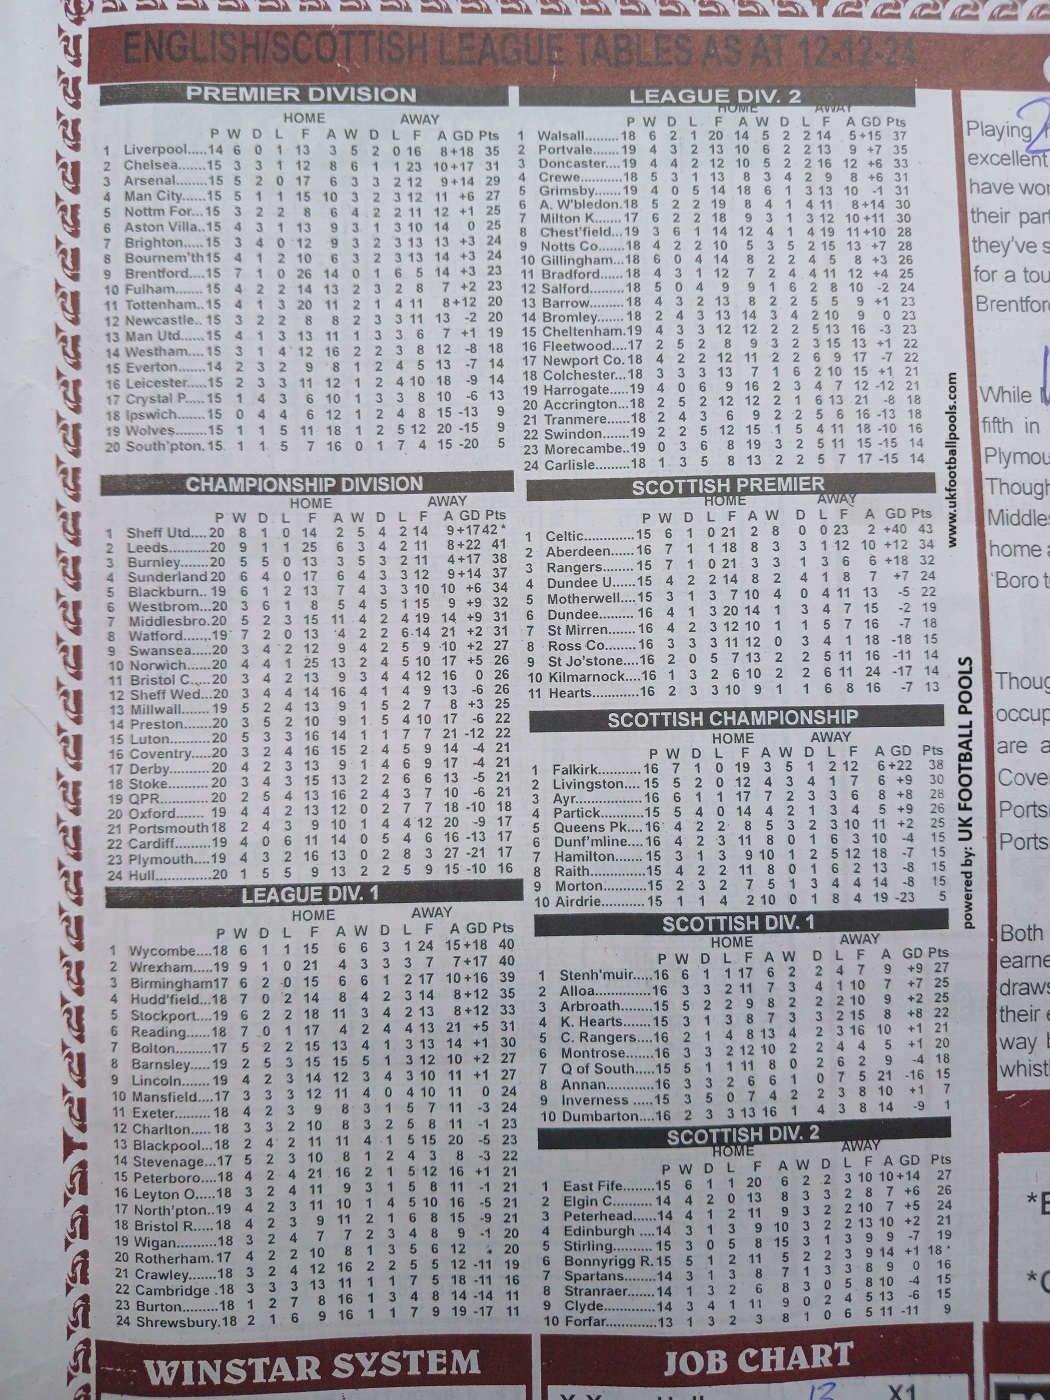 ENGLISH/SCOTTISH LEAGUE TABLES AS AT 12-12-24
PREMIER DIVISION
HOME AWAY
P W D L F A W D L F A GD Pts
1 Liverpool.....14 6 0 1 13 3 5 2 0 16 8+18 35
2 Chelsea.......15 3 3 1 12 8 6 1 1 23 10+17 31
3 Arsenal.......15 5 2 0 17 6 3 3 2 12 9+14 29
4 Man City......15 5 1 1 15 10 3 2 3 12 11 +6 27
5 Nottm For...15 3 2 2 8 6 4 2 2 11 12 +1 25
6 Aston Villa..15 4 3 1 13 9 3 1 3 10 14 0 25
7 Brighton......15 3 4 0 12 9 3 2 3 13 13 +3 24
8 Bournem'th15 4 1 2 10 6 3 2 3 13 14 +3 24
9 Brentford....15 7 1 0 26 14 0 1 6 5 14 +3 23
10 Fulham......15 4 2 2 14 13 2 3 2 8 7 +2 23
11 Tottenham..15 4 1 3 20 11 2 1 4 11 8+12 20
12 Newcastle..15 3 2 2 8 8 2 3 3 11 13 -2 20
13 Man Utd.....15 4 1 3 13 11 1 3 3 6 7 +1 19
14 Westham....15 3 1 4 12 16 2 2 3 8 12 -8 18
15 Everton......14 2 3 2 9 8 1 2 4 5 13 -7 14
16 Leicester....15 2 3 3 11 12 1 2 4 10 18 -9 14
17 Crystal P....15 1 4 3 6 10 1 3 3 8 10 -6 13
18 Ipswich......15 0 4 4 6 12 1 2 4 8 15 -13 9
19 Wolves......15 1 1 5 11 18 1 2 5 12 20 -15 9
20 South'pton.15 1 1 5 7 16 0 1 7 4 15 -20 5
CHAMPIONSHIP DIVISION
HOME AWAY
P W D L F A W D L F A GD Pts
1 Sheff Utd....20 8 1 0 14 2 5 4 2 14 9+17 42*
2 Leeds.........20 9 1 1 25 6 3 4 2 11 8+22 41
3 Burnley.......20 5 5 0 13 3 5 3 2 11 4+17 38
4 Sunderland 20 6 4 0 17 6 4 3 3 12 9+14 37
5 Blackburn.. 19 6 1 2 13 7 4 3 3 10 10 +6 34
6 Westbrom...20 3 6 1 8 5 4 5 1 15 9 +9 32
7 Middlesbro.20 5 2 3 15 11 4 2 4 19 14 +9 31
8 Watford......19 7 2 0 13 4 2 2 6 14 21 +2 31
9 Swansea....20 3 4 2 12 9 4 2 5 9 10 +2 27
10 Norwich.....20 4 4 1 25 13 2 4 5 10 17 +5 26
11 Bristol C....20 3 4 2 13 9 3 4 4 12 16 0 26
12 Sheff Wed...20 3 4 4 14 16 4 1 4 9 13 -6 26
13 Millwall.....19 5 2 4 13 9 1 5 2 7 8 +3 25
14 Preston......20 3 5 2 10 9 1 5 4 10 17 -6 22
15 Luton..........20 5 3 3 16 14 1 1 7 7 21 -12 22
16 Coventry....20 3 2 4 16 15 2 4 5 9 14 -4 21
17 Derby.........20 4 2 3 13 9 1 4 6 9 17 -4 21
18 Stoke.........20 3 4 3 15 13 2 2 6 6 13 -5 21
19 QPR..........20 2 5 4 13 16 2 4 3 7 10 -6 21
20 Oxford.......19 4 4 2 13 12 0 2 7 7 18 -10 18
21 Portsmouth18 2 4 3 9 10 1 4 4 12 20 -9 17
22 Cardiff.......19 4 0 6 11 14 0 5 4 6 16 -13 17
23 Plymouth....19 4 3 2 16 13 0 2 8 3 27 -21 17
24 Hull...........20 1 5 5 9 13 2 2 5 9 15 -10 16
LEAGUE DIV. 1
HOME AWAY
P W D L F A W D L F A GD Pts
1 Wycombe....18 6 1 1 15 6 6 3 1 24 15+18 40
2 Wrexham....19 9 1 0 21 4 3 3 3 7 7+17 40
3 Birmingham17 6 2 0 15 6 6 1 2 17 10+16 39
4 Hudd'field...18 7 0 2 14 8 4 2 3 14 8+12 35
5 Stockport....19 6 2 2 18 11 3 4 2 13 8+12 33
6 Reading......18 7 0 1 17 4 2 4 4 13 21 +5 31
7 Bolton........17 5 2 2 15 13 4 1 3 13 14 +1 30
8 Barnsley.....19 2 5 3 15 15 5 1 3 12 10 +2 27
9 Lincoln.......19 4 2 3 14 12 3 4 3 10 11 +1 27
10 Mansfield....17 3 3 3 12 11 4 0 4 10 11 0 24
11 Exeter.......18 4 2 3 9 8 3 1 5 7 11 -3 24
12 Charlton.....18 3 3 2 10 8 3 2 5 8 11 -1 23
13 Blackpool...18 2 4 2 11 11 4 1 5 15 20 -5 23
14 Stevenage...17 5 2 3 10 8 1 2 4 3 8 -3 22
15 Peterboro...18 4 2 4 21 16 2 1 5 12 16 +1 21
16 Leyton O.....18 3 2 4 11 9 3 1 5 8 11 -1 21
17 North'pton..19 4 2 3 11 10 1 4 5 10 16 -5 21
18 Bristol R.....18 4 2 3 9 11 2 1 6 8 15 -9 21
19 Wigan........18 3 2 4 7 7 2 3 4 8 9 -1 20
20 Rotherham.17 4 2 2 10 8 1 3 5 6 12 20
21 Crawley......18 3 2 4 12 16 2 2 5 5 12 -11 19
22 Cambridge .18 3 3 3 13 11 1 1 7 5 18 -11 16
23 Burton........18 1 2 7 8 16 1 3 4 8 14 -14 11
24 Shrewsbury.18 2 1 6 9 16 1 1 7 9 19 -17 11
LEAGUE DIV. 2
HOME AWAY
P W D L F A W D L F A GD Pts
1 Walsall........18 6 2 1 20 14 5 2 2 14 5+15 37
2 Portvale......19 4 3 2 13 10 6 2 2 13 9 +7 35
3 Doncaster...19 4 4 2 12 10 5 2 2 16 12 +6 33
4 Crewe........18 5 3 1 13 8 3 4 2 9 8 +6 31
5 Grimsby.....19 4 0 5 14 18 6 1 3 13 10 -1 31
6 A. W'bledon.18 5 2 2 19 8 4 1 4 11 8+14 30
7 Milton K......17 6 2 2 18 9 3 1 3 12 10+11 30
8 Chest'field...19 3 6 1 14 12 4 1 4 19 11+10 28
9 Notts Co.....18 4 2 2 10 5 3 5 2 15 13 +7 28
10 Gillingham...18 6 0 4 14 8 2 2 4 5 8 +3 26
11 Bradford.....18 4 3 1 12 7 2 4 4 11 12 +4 25
12 Salford.......18 5 0 4 9 9 1 6 2 8 10 -2 24
13 Barrow.......18 4 3 2 13 8 2 2 5 5 9 +1 23
14 Bromley......18 2 4 3 13 14 3 4 2 10 9 0 23
15 Cheltenham.19 4 3 3 12 12 2 2 5 13 16 -3 23
16 Fleetwood...17 2 5 2 8 9 3 2 3 15 13 +1 22
17 Newport Co.18 4 2 2 12 11 2 2 6 9 17 -7 22
18 Colchester...18 3 3 3 13 7 1 6 2 10 15 +1 21
19 Harrogate....19 4 0 6 9 16 2 3 4 7 12 -12 21
20 Accrington...18 2 5 2 12 12 2 1 6 13 21 -8 18
21 Tranmere....18 2 4 3 6 9 2 2 5 6 16 -13 18
22 Swindon.....19 2 2 5 12 15 1 5 4 11 18 -10 16
23 Morecambe..19 0 3 6 8 19 3 2 5 11 15 -15 14
24 Carlisle.......18 1 3 5 8 13 2 2 5 7 17 -15 14
SCOTTISH PREMIER
HOME AWAY
P W D L F A W D L F A GD Pts
1 Celtic.........15 6 1 0 21 2 8 0 0 23 2 +40 43
2 Aberdeen....16 7 1 1 18 8 3 3 1 12 10 +12 34
3 Rangers......15 7 1 0 21 3 3 1 3 6 6 +18 32
4 Dundee U....15 4 2 2 14 8 2 4 1 8 7 +7 24
5 Motherwell...15 3 1 3 7 10 4 0 4 11 13 -5 22
6 Dundee.......16 4 1 3 20 14 1 3 4 7 15 -2 19
7 St Mirren.....16 4 2 3 12 10 1 1 5 7 16 -7 18
8 Ross Co......16 3 3 3 11 12 0 3 4 1 18 -18 15
9 St Jo'stone...16 2 0 5 7 13 2 2 5 11 16 -11 14
10 Kilmarnock...16 1 3 2 6 10 2 2 6 11 24 -17 14
11 Hearts........16 2 3 3 10 9 1 1 6 8 16 -7 13
SCOTTISH CHAMPIONSHIP
HOME AWAY
P W D L F A W D L F A GD Pts
1 Falkirk........16 7 1 0 19 3 5 1 2 12 6+22 38
2 Livingston....15 5 2 0 12 4 3 4 1 7 6 +9 30
3 Ayr..............16 6 1 1 17 7 2 3 3 6 8 +8 28
4 Partick.......15 5 4 0 14 4 2 1 3 4 5 +9 26
5 Queens Pk...16 4 2 2 8 5 3 2 3 10 11 +2 25
6 Dunf'mline....16 4 2 3 11 8 0 1 6 3 10 -4 15
7 Hamilton......15 3 1 3 9 10 1 2 5 12 18 -7 15
8 Raith..........15 4 2 2 11 8 0 1 6 2 13 -8 15
9 Morton........15 2 3 2 7 5 1 3 4 4 14 -8 15
10 Airdrie........15 1 1 4 2 10 0 1 8 4 19 -23 5
SCOTTISH DIV. 1
HOME AWAY
P W D L F A W D L F A GD Pts
1 Stenh'muir....16 6 1 1 17 6 2 2 4 7 9 +9 27
2 Alloa...........16 3 3 2 11 7 3 4 1 10 7 +7 25
3 Arbroath......15 5 2 2 9 8 2 2 2 10 9 +2 25
4 K. Hearts.....15 3 1 3 8 7 3 3 2 15 8 +8 22
5 C. Rangers...16 2 1 4 8 13 4 2 3 16 10 +1 21
6 Montrose.....16 3 3 2 12 10 2 2 4 4 5 +1 20
7 Q of South....15 5 1 1 11 8 0 2 6 2 9 -4 18
8 Annan.........16 3 3 2 6 6 1 0 7 5 21 -16 15
9 Inverness .....15 3 5 0 7 4 3 2 3 8 10 +1 7
10 Dumbarton....16 2 3 3 13 16 1 4 3 8 14 -9 1
SCOTTISH DIV. 2
HOME AWAY
P W D L F A W D L F A GD Pts
1 East Fife......15 6 1 1 20 6 2 2 3 10 10+14 27
2 Elgin C........14 4 2 0 13 8 3 3 2 8 7 +6 26
3 Peterhead....14 4 1 2 11 9 3 2 2 10 7 +5 24
4 Edinburgh ....14 3 1 3 9 10 3 2 2 13 10 +2 21
5 Stirling........15 3 0 5 8 15 3 1 3 9 9 -7 19
6 Bonnyrigg R.15 5 1 2 11 5 2 2 3 9 14 +1 18*
7 Spartans......14 3 1 3 8 7 1 3 3 8 9 0 16
8 Stranraer.....14 1 3 2 6 8 3 0 5 8 10 -4 15
9 Clyde..........14 3 4 1 11 9 0 2 4 5 13 -6 15
10 Forfar.........13 1 3 2 3 8 1 0 6 5 11 -11 9
www.ukfootballpools.com
powered by: UK FOOTBALL POOLS
Playing
excellent
have wor
their part
they've s
for a tou
Brentford
While
fifth in
Plymou
Though
Middles
home a
'Boro to
Thoug
occup
are a
Cove
Ports
Ports
Both
earne
draws
their e
way b
whistl
WINSTAR SYSTEM
JOB CHART
13 X1